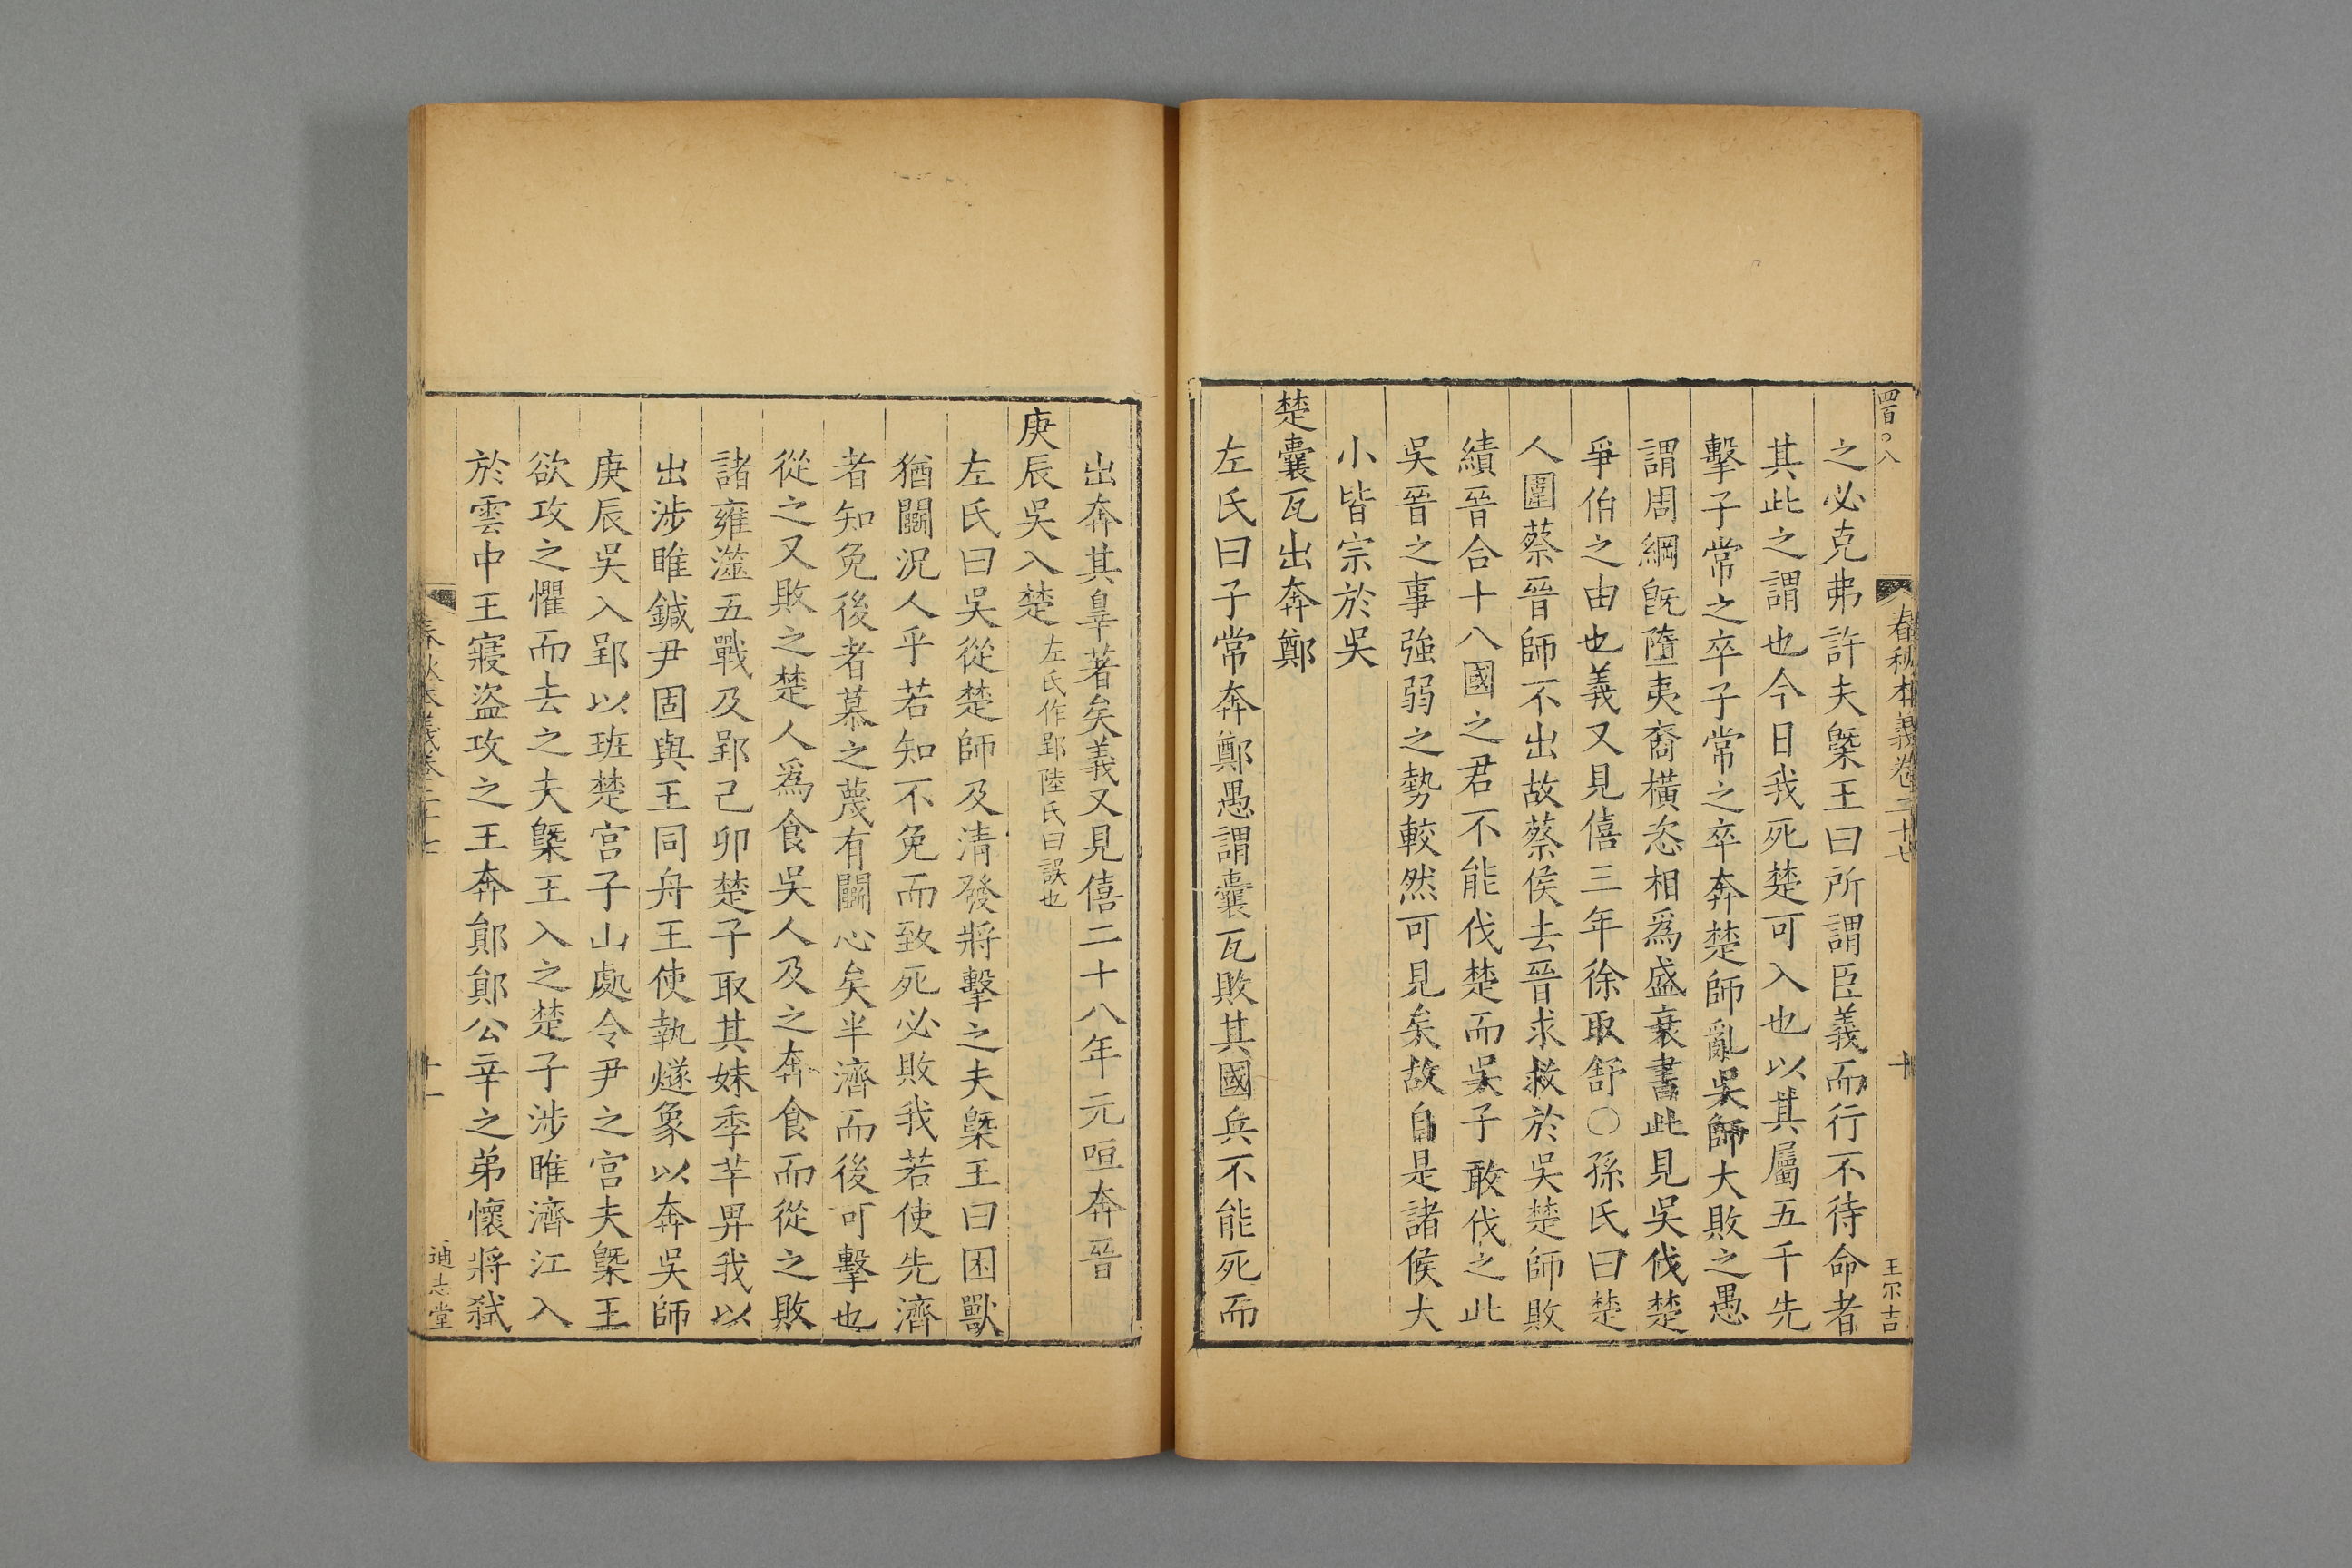 四百〇八
春秋本義卷二十七
十
王宗吉
之必克弗許夫槩王曰所謂臣義而行不待命者
其此之謂也今日我死楚可入也以其屬五千先
擊子常之卒子常之卒奔楚師亂吳師大敗之愚
謂周綱旣墮夷裔橫恣相爲盛衰書此見吳伐楚
爭伯之由也義又見僖三年徐取舒○孫氏曰楚
人圍蔡晉師不出故蔡侯去晉求救於吳楚師敗
績晉合十八國之君不能伐楚而吳子敢伐之此
吳晉之事強弱之勢較然可見矣故自是諸侯大
小皆宗於吳
楚囊瓦出奔鄭
左氏曰子常奔鄭愚謂囊瓦敗其國兵不能死而
出奔其辠著矣義又見僖二十八年元咺奔晉
庚辰吳入楚左氏作郢陸氏曰誤也
左氏曰吳從楚師及清發將擊之夫槩王曰困獸
猶鬭況人乎若知不免而致死必敗我若使先濟
者知免後者慕之蔑有鬭心矣半濟而後可擊也
從之又敗之楚人爲食吳人及之奔食而從之敗
諸雍澨五戰及郢己卯楚子取其妹季芊畀我以
出涉睢鍼尹固與王同舟王使執燧象以奔吳師
庚辰吳入郢以班楚宮子山處令尹之宮夫槩王
欲攻之懼而去之夫槩王入之楚子涉睢濟江入
於雲中王寢盜攻之王奔鄖鄖公辛之弟懷將弒
春秋本義卷二十七
十一
通志堂